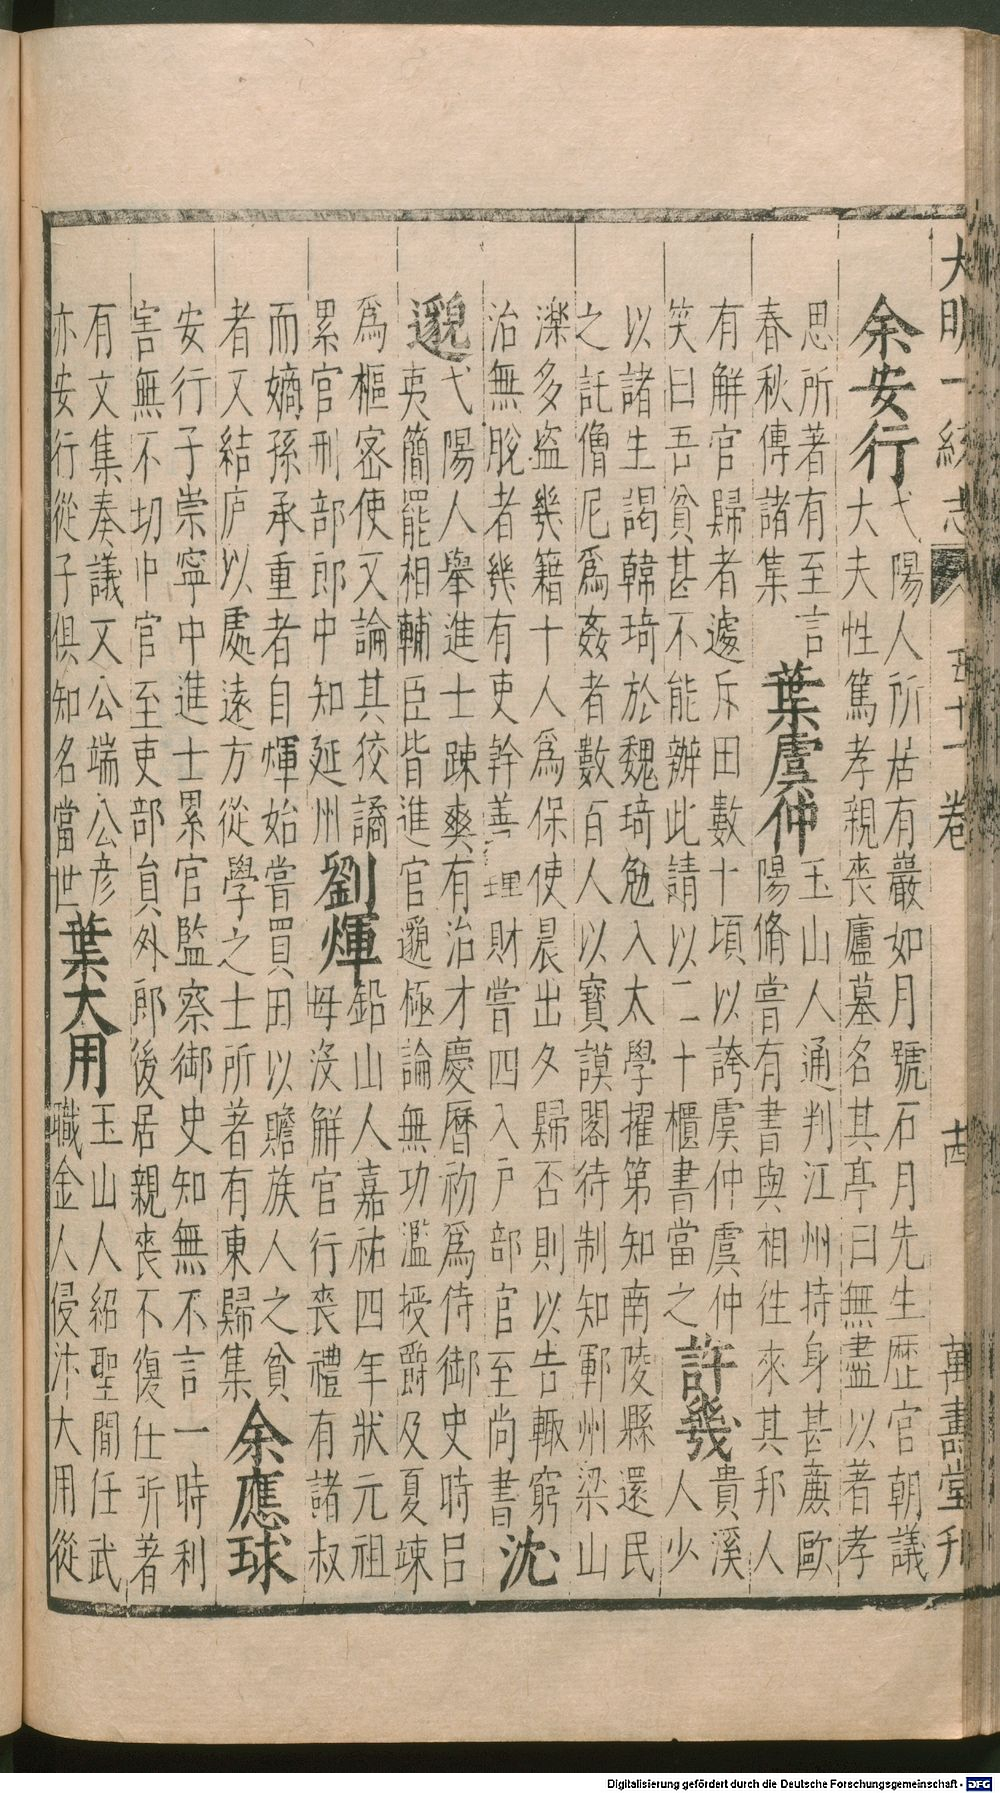 大明一統志 五十一卷 十四 萬壽堂刊
余安行
弋陽人所居有巖如月號石月先生歷官朝議
大夫性篤孝親喪廬墓名其亭曰無盡以著孝
思所著有至言
春秋傳諸集
葉虞仲
玉山人通判江州持身甚蔗歐
陽脩嘗有書與相徃來其邦人
有解官歸者遽斥田數十頃以誇虞仲虞仲
笑曰吾貧甚不能辦此請以二十櫃書當之
許幾
貴溪
人少
以諸生謁韓琦於魏琦勉入太學擢第知南陵縣還民
之託僧尼為姦者數百人以寳謨閣待制知鄆州梁山
濼多盗幾籍十人為保使晨出夕歸否則以告輙窮
治無脫者幾有吏幹善理財嘗四入戸部官至尚書
沈
邈
弋陽人舉進士踈爽有治才慶曆初為侍御史時呂
夷簡罷相輔臣皆進官邈極論無功濫授爵及夏竦
為樞密使又論其狡譎
累官刑部郎中知延州
劉煇
鉛山人嘉祐四年狀元祖
母沒解官行喪禮有諸叔
而嫡孫承重者自煇始嘗買田以贍族人之貧
者又結庐以處遠方從學之士所著有東歸集
余應球
安行子崇寧中進士累官監察御史知無不言一時利
害無不切中官至吏部員外郎後居親喪不復仕所著
有文集奏議又公端公彦
亦安行從子俱知名當世
葉大用
玉山人紹聖間任武
職金人侵汴大用從